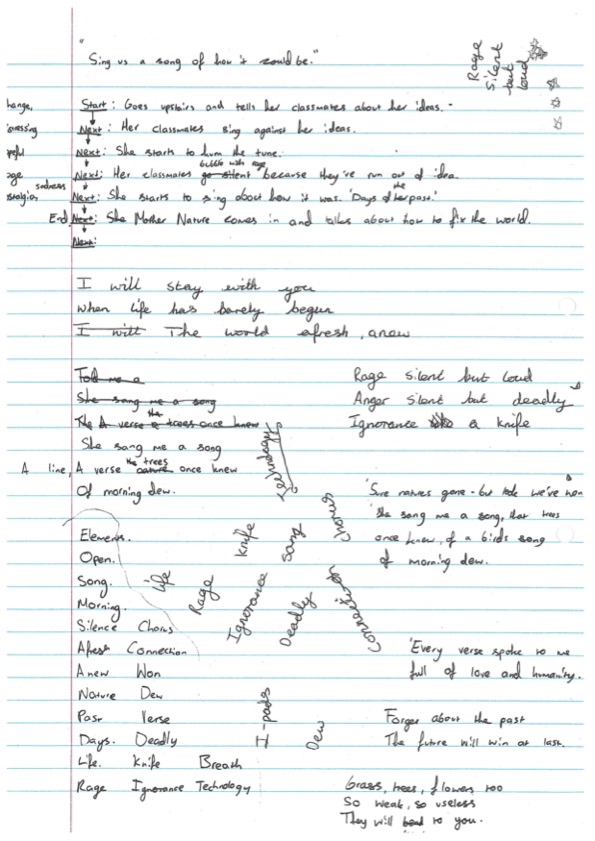 "Sing us a song of how it could be."
Rage
Silent
but
loud
hange, Start: Goes upstairs and tells her classmates about her ideas. -
Next: Her classmates sing against her ideas.
Next: She starts to hum the tune.
bubble with rage
Next: Her classmates go silent because they're run out of idea
sadness
Next: She starts to sing about how it was. 'Days of the past.'
End Next: She Mother Nature comes in and talks about how to fix the world.
Next:
I will stay with you
When life has barely begun
I will The world afresh, anew
Told me a
She sang me a song
The A verse the trees once knew
She sang me a song
A line, A verse the trees nature once knew
Of morning dew.
Rage silent but loud
Anger silent but deadly
Ignorance a knife
'Sure natures gone - but we've won
'She sang me a song, that trees
once knew, of a birds song
of morning dew.
Technology
Chorus
Sang
Knife
Life
Rage
Ignorance
Deadly
Connection
Elements.
Open.
Song.
Morning.
Silence Chorus
Afresh Connection
Anew Won
Nature Dew
Past Verse
Days. Deadly
Life. Knife Breath
Rage Ignorance Technology
I-pads
Dew
'Every verse spoke to me
full of love and humanity.
Forget about the past
The future will win at last.
Grass, trees, flowers too
So weak, so useless
They will bend to you.